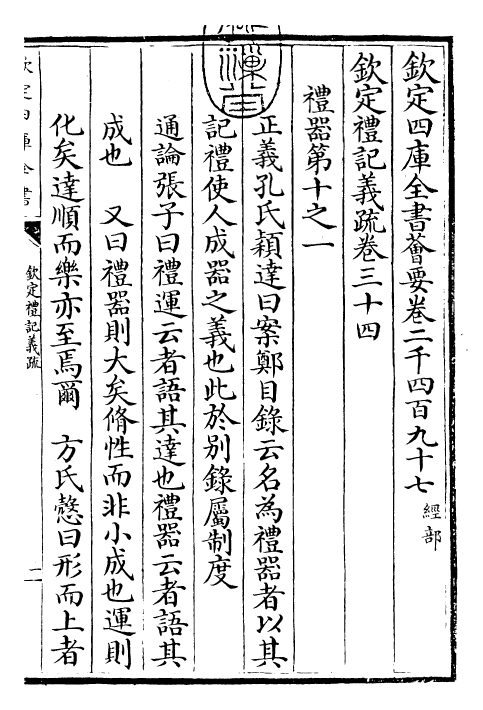 欽定四庫全書薈要卷二千四百九十七 經部
欽定禮記義疏卷三十四
禮器第十之一
正義孔氏穎達曰案鄭目錄云名為禮器者以其
記禮使人成器之義也此於別錄屬制度
通論張子曰禮運云者語其達也禮器云者語其
成也 又曰禮器則大矣脩性而非小成也運則
化矣達順而樂亦至焉爾 方氏慤曰形而上者
欽定四庫全書
欽定禮記義疏